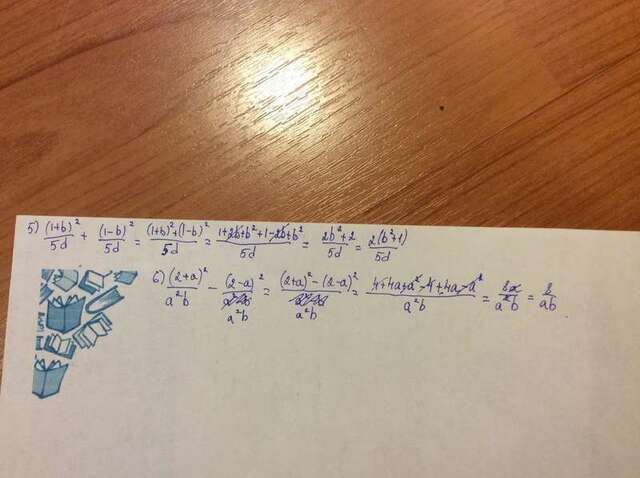 5) (1+b)²/5d + (1-b)²/5d = (1+b)²+(1-b)²/5d = 1+2b+b²+1-2b+b²/5d = 2b²+2/5d = 2(b²+1)/5d
6) (2+a)²/a²b - (2-a)²/a²b = (2+a)²-(2-a)²/a²b = 4+4a+a²-4+4a-a²/a²b = 8a/a²b = 8/ab